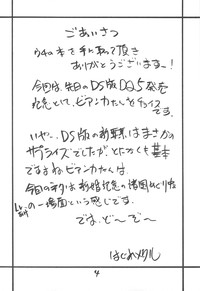 ごあいさつ
ウチの本を手に取って頂き
ありがとうございますー!
今回は先日のDS版DQ5発売
記念として、ビアンカたんをチョイス
です。
いやー、DS版の新要素はまさかの
サプライズでしたが、とにかくも基本
ですよねビアンカたんは。
今回のネタは新婚記念の諸国めぐり
の一場面という感じです。
では、ど〜ぞ〜
はじめメタル
4